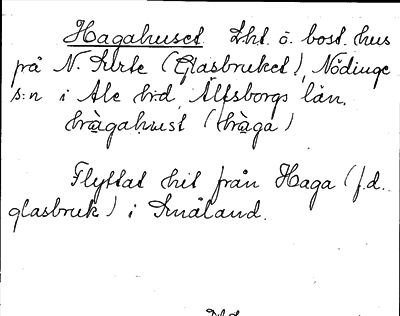 Hagahuset. Lht. ö. bost. hus
på N. Surte (Glasbruket), Nödinge
s:n i Ale hd, Älfsborgs län.
hàgahust (hàga)
Flyttat hit från Haga (f.d.
glasbruk) i Småland.